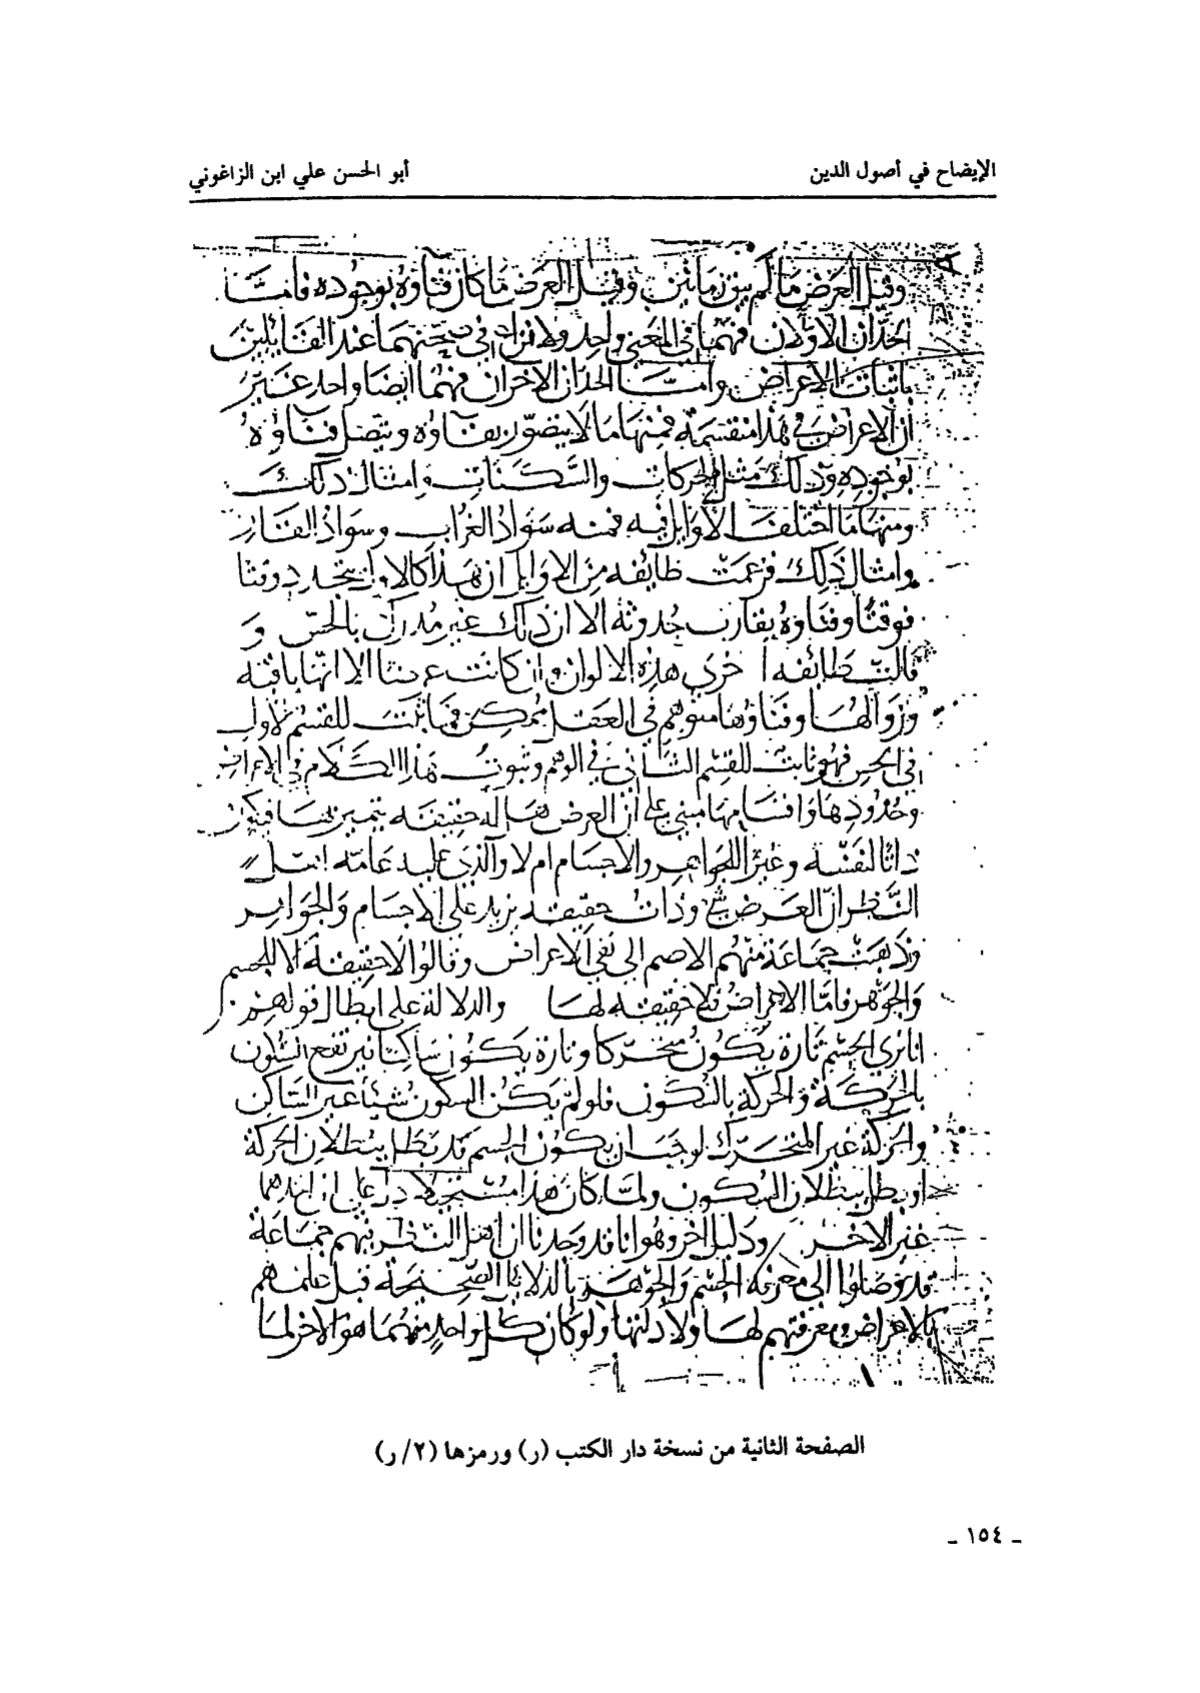 الإيضاح في أصول الدين
أبو الحسن علي ابن الزاغوني
وقيل العرض ما لم يبق زمانين وقيل العرض ما كان فناؤه بوجوده فامـا
الحدان الاولان فهما في المعنى واحد ولا نزاع في صحتهما عند القايلين
باثبات الاعراض وامـا الحدان الاخران فهما ايضا واحد غير
ان الاعراض في هذا منقسمة فمنها ما لا يتصور بقاؤه ويتصل فناؤه
بوجوده وذلك مثل الحركات والسكنات وامثال ذلك
ومنها ما اختلف الاوايل فيه فمنه سواد الغراب وسواد القار
وامثال ذلك فزعمت طائفه من الاوايل ان هذا كالاول يتجدد وقتا
فوقتا وفناؤه يقارب حدوثه الا ان ذلك غير مدرك بالحس و
قالت طائفه اخرى هذه الالوان وان كانت عرضا الا انها باقيه
وزوالها وفناؤها متوهم في العقل ممكن فما ثبت للقسم الاول
في الحس فهو ثابت للقسم الثاني في الوهم وثبوت هذا الكلام في الاعراض
وحدودها واقسامها مبني على ان العرض هل له حقيقه يتميز بها فيكون
ذاتا لنفسه وغير الجواهر والاجسام ام لا والذي عليه عامة اهل
النظر ان العرض شي وذات حقيقه يزيد على الاجسام والجواهر
وذهبت جماعة منهم الاصم الى نفي الاعراض وقالوا لا حقيقة الا للجسم
والجوهر فاما الاعراض فلا حقيقه لها والدلالة على ابطال قولهم
انا نرى الجسم تارة يكون متحركا وتارة يكون ساكنا يرتفع السكون
بالحركة والحركة بالسكون فلو لم يكن السكون شيئا غير الساكن
والحركة غير المتحرك لوجب ان يكون الجسم قد بطل ببطلان الحركة
او بطل ببطلان السكون ولما كان هذا مستحيلا دل على ان احدهما
غير الاخر ودليل اخر وهو انا قد وجدنا ان اهل النظر فيهم جماعة
قد توصلوا الى معرفة الجسم والجوهر بالدلايل الصحيحة قبل علمهم
بالاعراض ومعرفتهم لها ولا دلتها ولو كان كل واحد منهما هو الاخر لما
الصفحة الثانية من نسخة دار الكتب (ر) ورمزها (٢/ر)
ـ ١٥٤ ـ